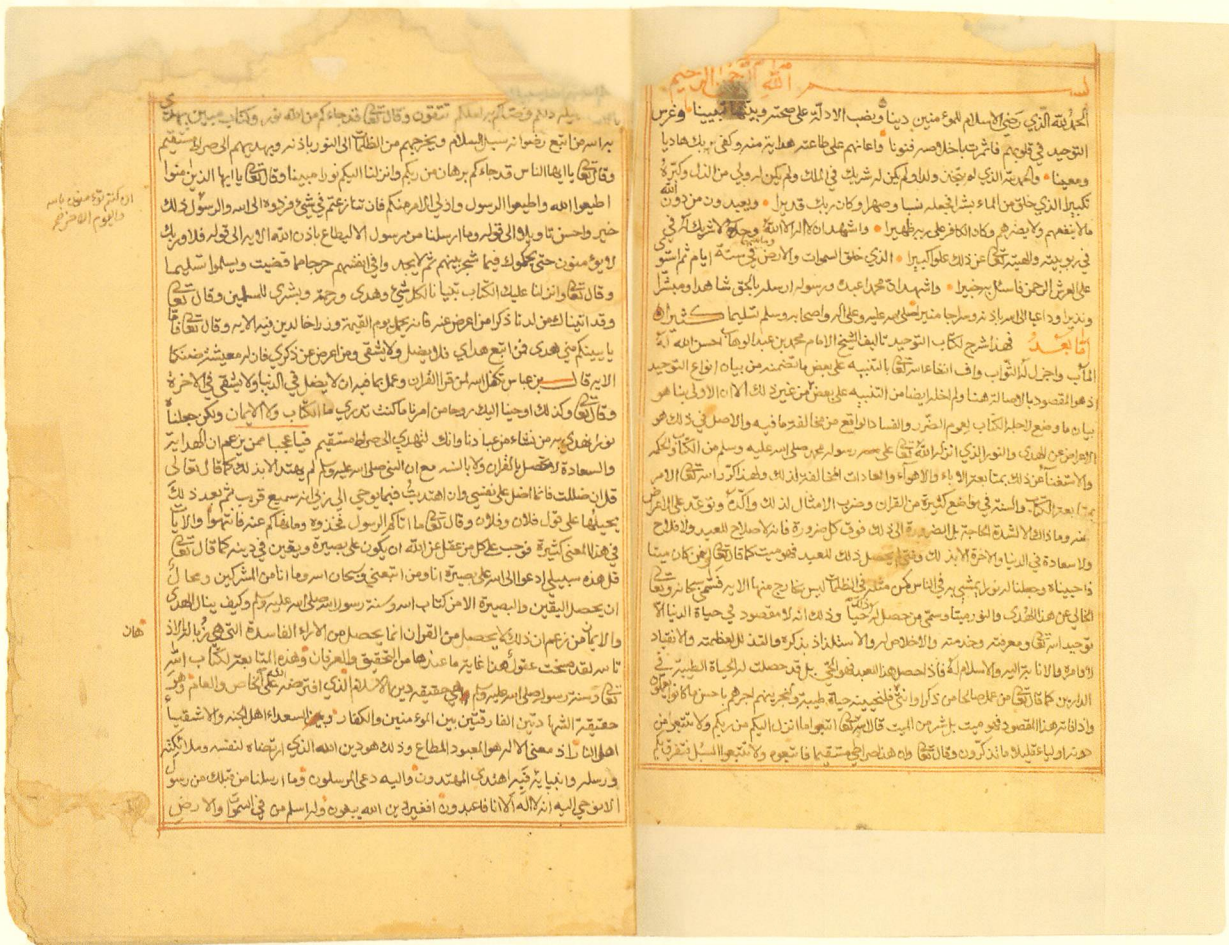 بسم الله الرحمن الرحيم
الحمد لله الذي رضي الاسلام للمؤمنين دينا ونصب الادلة على صحته وبينها تبيينا وغرس
التوحيد في قلوبهم فاثمرت باخلاصه فنونا واعانهم على طاعته هداية منه وكفى بربك هاديا
ومعينا والحمد لله الذي لم يتخذ ولدا ولم يكن له شريك في الملك ولم يكن له ولي من الذل وكبره
تكبيرا الذي خلق من الماء بشرا فجعله نسبا وصهرا وكان ربك قديرا ويعبدون من دون الله
ما لا ينفعهم ولا يضرهم وكان الكافر على ربه ظهيرا واشهد ان لا اله الا الله وحده لا شريك له في
ربوبيته والهيته تعالى عن ذلك علوا كبيرا الذي خلق السموات والارض وما بينهما في ستة ايام ثم استوى
على العرش الرحمن فاسئل به خبيرا واشهد ان محمدا عبده ورسوله ارسله بالحق شاهدا ومبشرا
ونذيرا وداعيا الى الله باذنه وسراجا منيرا صلى الله عليه وعلى اله واصحابه وسلم تسليما كثيرا
اما بعد فهذا شرح لكتاب التوحيد تاليف الشيخ الامام محمد بن عبد الوهاب احسن الله له
المآب واجزل له الثواب واف ان شاء الله تعالى بالتنبيه على بعض ما تضمنه من بيان انواع التوحيد
اذ هو المقصود بالاصالة هنا ولم اخله ايضا من التنبيه على بعض من غير ذلك الا ان الاولى بنا هو
بيان ما وضع لاجله الكتاب لعموم الضرر والفساد الواقع من مخالفة ما فيه والاصل في ذلك هو
الاعراض عن الهدى والنور الذي انزله الله تعالى على رسوله محمد صلى الله عليه وسلم من الكتاب والحكمة
والاستغناء عن ذلك بمتابعة الاباء والاهواء والعادات المخالفة لذلك ولهذا كرر الله تعالى الامر
بمتابعة الكتاب والسنة في مواضع كثيرة من القران وضرب الامثال لذلك واكد وتوعد على الاعراض
عنه وما ذاك الا لشدة الحاجة بل الضرورة الى ذلك فوق كل ضرورة فانه لا صلاح للعبد ولا فلاح
ولا سعادة في الدنيا والاخرة الا بذلك ومتى لم يحصل ذلك للعبد فهو ميت كما قال تعالى اومن كان ميتا
فاحييناه وجعلنا له نورا يمشي به في الناس كمن مثله في الظلمات ليس بخارج منها الاية فسمى سبحانه وتعالى
الخالي عن هذا الهدى والنور ميتا وسمى من حصل له ذلك حيا وذلك انه لا مقصود في حياة الدنيا الا
توحيد الله تعالى ومعرفته وخدمته والاخلاص له والاستلذاذ بذكره والتذلل لعظمته والانقياد
لاوامره والانابة اليه والاسلام له فاذا حصل هذا للعبد فهو الحي بل قد حصلت له الحياة الطيبة في
الدارين كما قال تعالى من عمل صالحا من ذكر او انثى فلنحيينه حياة طيبة ولنجزينهم اجرهم باحسن ما كانوا يعملون
واذا فاته هذا المقصود فهو ميت بل شر من الميت قال الله تعالى اتبعوا ما انزل اليكم من ربكم ولا تتبعوا من
دونه اولياء قليلا ما تذكرون وقال تعالى وان هذا صراطي مستقيما فاتبعوه ولا تتبعوا السبل فتفرق بكم
عن سبيله ذلكم وصاكم به لعلكم تتقون وقال تعالى قد جاءكم من الله نور وكتاب مبين يهدي
به الله من اتبع رضوانه سبل السلام ويخرجهم من الظلمات الى النور باذنه ويهديهم الى صراط مستقيم
وقال تعالى يا ايها الناس قد جاءكم برهان من ربكم وانزلنا اليكم نورا مبينا وقال تعالى يا ايها الذين امنوا
اطيعوا الله واطيعوا الرسول واولي الامر منكم فان تنازعتم في شيء فردوه الى الله والرسول ذلك
خير واحسن تاويلا الى قوله وما ارسلنا من رسول الا ليطاع باذن الله الاية الى قوله فلا وربك
لا يؤمنون حتى يحكموك فيما شجر بينهم ثم لا يجدوا في انفسهم حرجا مما قضيت ويسلموا تسليما
وقال تعالى وانزلنا عليك الكتاب تبيانا لكل شيء وهدى ورحمة وبشرى للمسلمين وقال تعالى
وقد اتيناك من لدنا ذكرا من اعرض عنه فانه يحمل يوم القيمة وزرا خالدين فيه الاية وقال تعالى فاما
ياتينكم مني هدى فمن اتبع هداي فلا يضل ولا يشقى ومن اعرض عن ذكري فان له معيشة ضنكا
الاية قال ابن عباس تكفل الله لمن قرا القران وعمل بما فيه ان لا يضل في الدنيا ولا يشقى في الاخرة
وقال تعالى وكذلك اوحينا اليك روحا من امرنا ما كنت تدري ما الكتاب ولا الايمان ولكن جعلناه
نورا نهدي به من نشاء من عبادنا وانك لتهدي الى صراط مستقيم فيا عجبا ممن يزعم ان الهداية
والسعادة لا تحصل بالقران ولا بالسنة مع ان النبي صلى الله عليه وسلم لم يهتد الا بذلك كما قال تعالى
قل ان ضللت فانما اضل على نفسي وان اهتديت فبما يوحي الي ربي انه سميع قريب ثم بعد ذلك
يحيلها على قول فلان وفلان وقال تعالى ما اتاكم الرسول فخذوه وما نهاكم عنه فانتهوا والايات
في هذا المعنى كثيرة فوجب على كل من عقل عن الله ان يكون على بصيرة ويقين في دينه كما قال تعالى
قل هذه سبيلي ادعو الى الله على بصيرة انا ومن اتبعني وسبحان الله وما انا من المشركين ومحال
ان يحصل اليقين والبصيرة الا من كتاب الله وسنة رسول الله صلى الله عليه وسلم وكيف ينال الهدى
والايمان من زعم ان ذلك لا يحصل من القران انما يحصل من الاراء الفاسدة التي هي زبالة الاذهان
تالله لقد مسخت عقول هذا غاية ما عندها من التحقيق والعرفان وهذه المتابعة لكتاب الله
تعالى وسنة رسوله صلى الله عليه وسلم هي حقيقة دين الاسلام الذي افترضه الله على الخاص والعام وهو
حقيقة الشهادتين الفارقتين بين المؤمنين والكفار وبين السعداء اهل الجنة والاشقياء
اهل النار اذ معنى الاله هو المعبود المطاع وذلك هو دين الله الذي ارتضاه لنفسه وملائكته
ورسله وانبيائه فبه اهتدى المهتدون واليه دعى المرسلون وما ارسلنا من قبلك من رسول
الا نوحي اليه انه لا اله الا انا فاعبدون افغير دين الله يبغون وله اسلم من في السموات والارض
ان كنتم تؤمنون بالله
واليوم الاخر